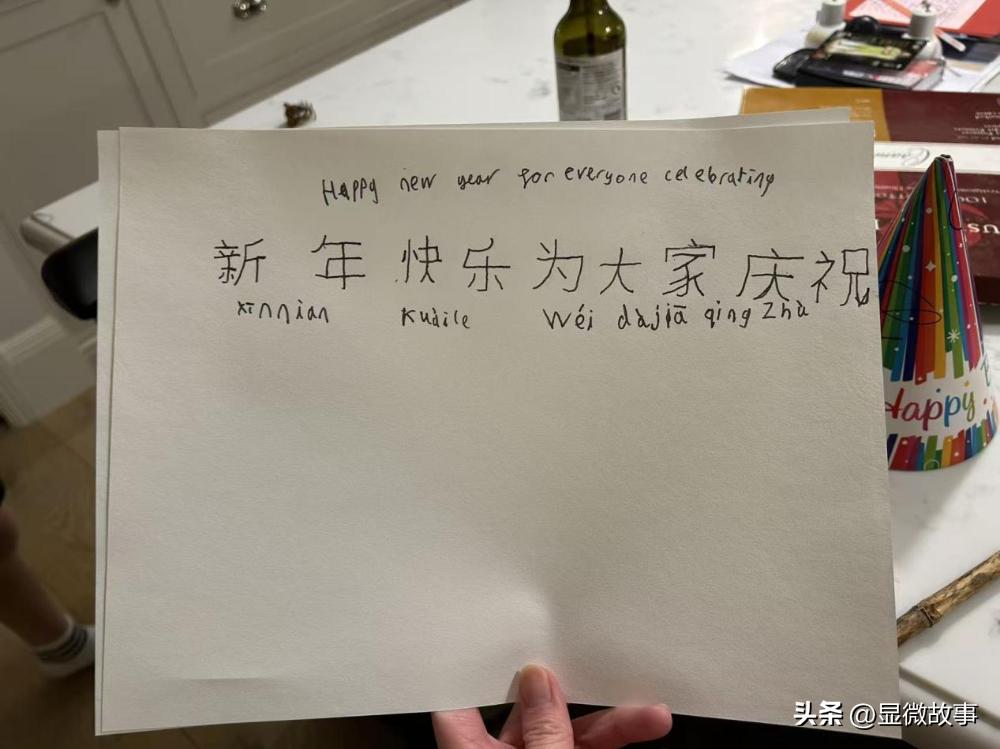 Happy new year for everyone celebrating
新年快乐为大家庆祝
xīnnian kuàile wéi dàjiā qìng zhù
Happy
头条 @显微故事